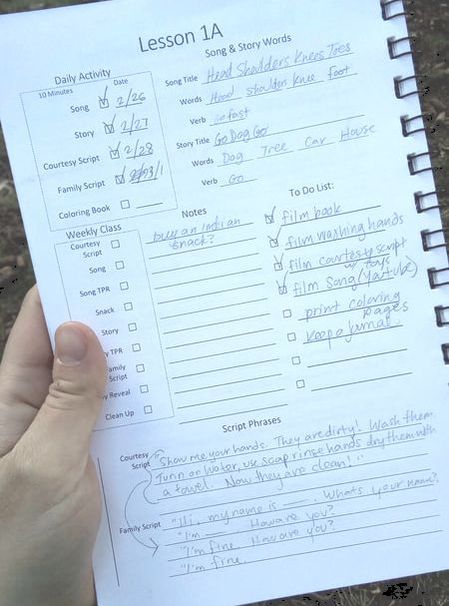 Lesson 1A
Daily Activity
10 Minutes Date
Song 2/26
Story 2/27
Courtesy Script 2/28
Family Script 3/1
Coloring Book
Song & Story Words
Song Title Head Shoulders Knees Toes
Words Head shoulder knee foot
Verb go fast
Story Title Go Dog Go
Words Dog Tree Car House
Verb Go
Weekly Class
Courtesy Script
Song
Song TPR
Snack
Story
y TPR
amily Script
y Reveal
Clean Up
Notes
buy an indian
snack?
To Do List:
film book
film washing hands
film courtesy script
w/ toys
film song (youtube)
print coloring
pages
keep a journal.
Script Phrases
Courtesy Script "Show me your hands. They are dirty! Wash them.
Turn on water, use soap rinse hands dry them with
a towel. Now they are clean!"
Family Script "Hi, my name is ___. What's your name?
"I'm ___. How are you?
"I'm fine. How are you?
"I'm fine.